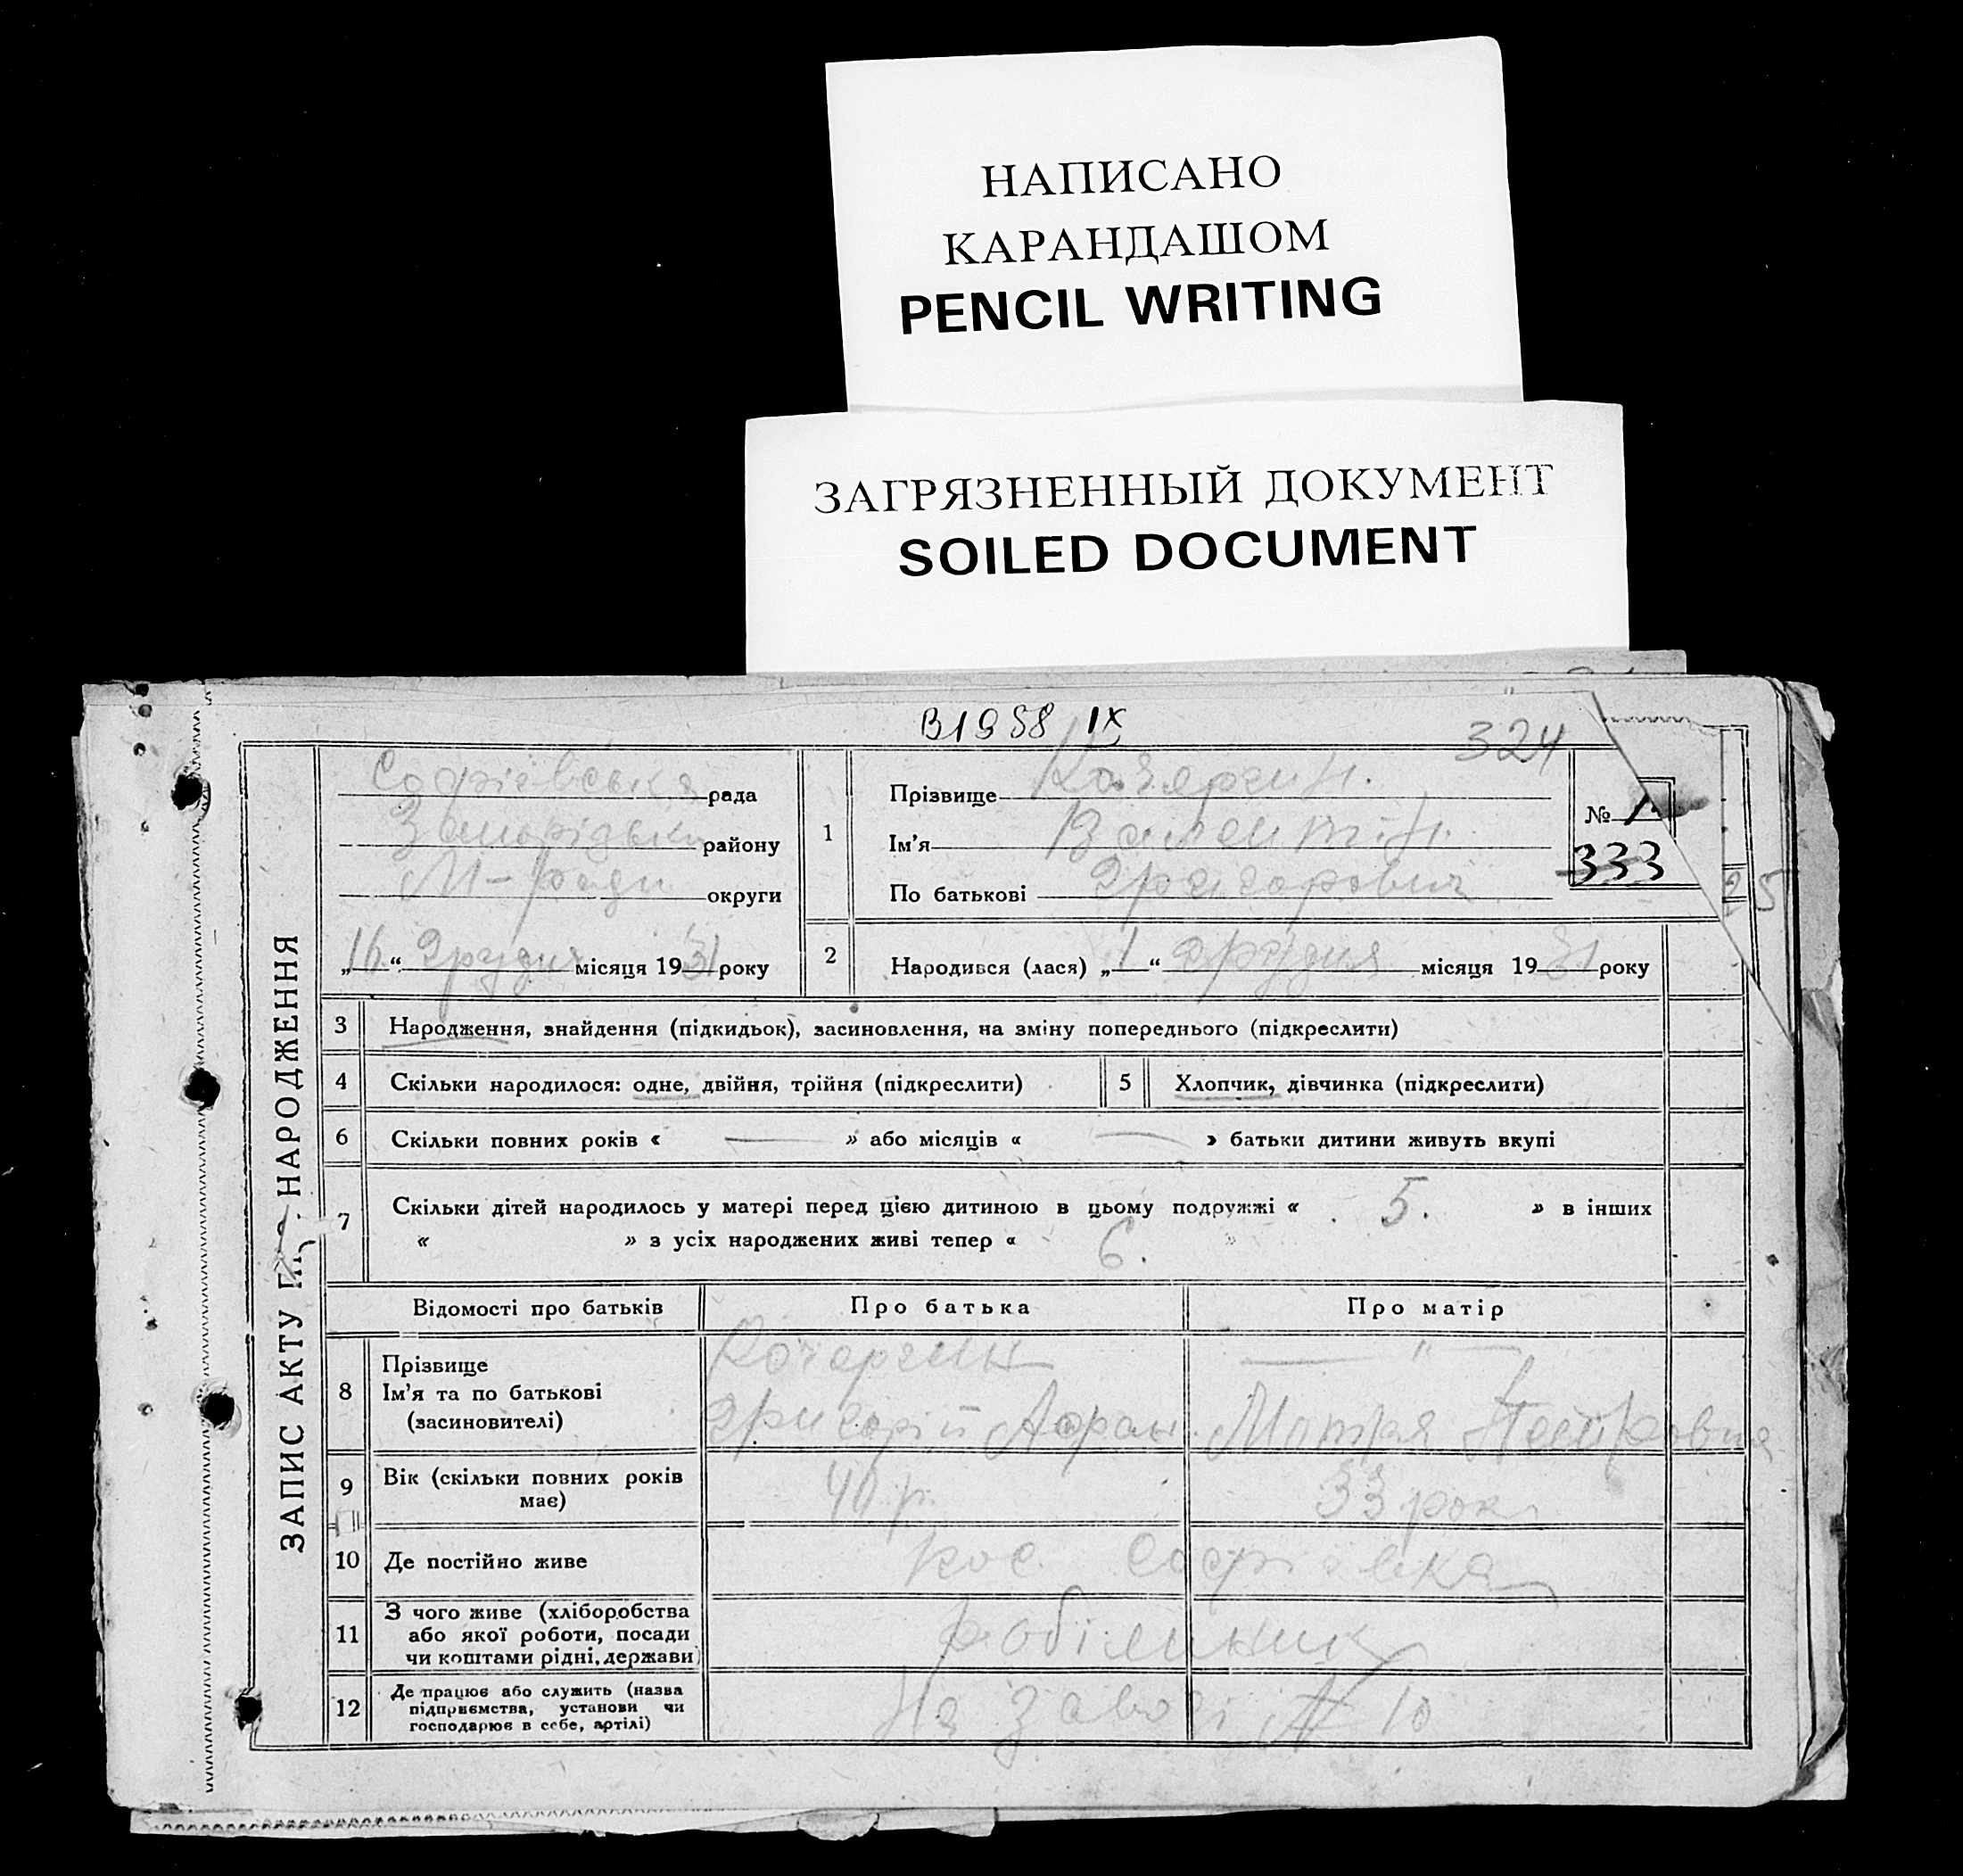 НАПИСАНО
КАРАНДАШОМ
PENCIL WRITING
ЗАГРЯЗНЕННЫЙ ДОКУМЕНТ
SOILED DOCUMENT
В1958 IX
324
ЗАПИС АКТУ НАРОДЖЕННЯ
Софіївська рада
району
М-ради округи
„16“ Грудня місяця 1931 року
1
Прізвище
Ім'я Валентин.
По батькові
№ 1
333
25
2
Народився (лася) „1“ грудня місяця 1931 року
3 Народження, знайдення (підкидьок), засиновлення, на зміну попереднього (підкреслити)
4 Скільки народилося: одне, двійня, трійня (підкреслити)
5 Хлопчик, дівчинка (підкреслити)
6 Скільки повних років « — » або місяців « — » батьки дитини живуть вкупі
7 Скільки дітей народилось у матері перед цією дитиною в цьому подружжі « 5. » в інших
« » з усіх народжених живі тепер « 6. »
Відомості про батьків Про батька Про матір
8 Прізвище Кочергин — " —
Ім'я та по батькові
(засновителі) Григорій Афран. Мотря
9 Вік (скільки повних років
має) 40 р. 33 рок
10 Де постійно живе пос. Софіївка
11 З чого живе (хліборобства
або якої роботи, посади
чи коштами рідні, держави) робітник
12 Де працює або служить (назва
підприємства, установи чи
господарює в себе, артілі) На заводі № 10